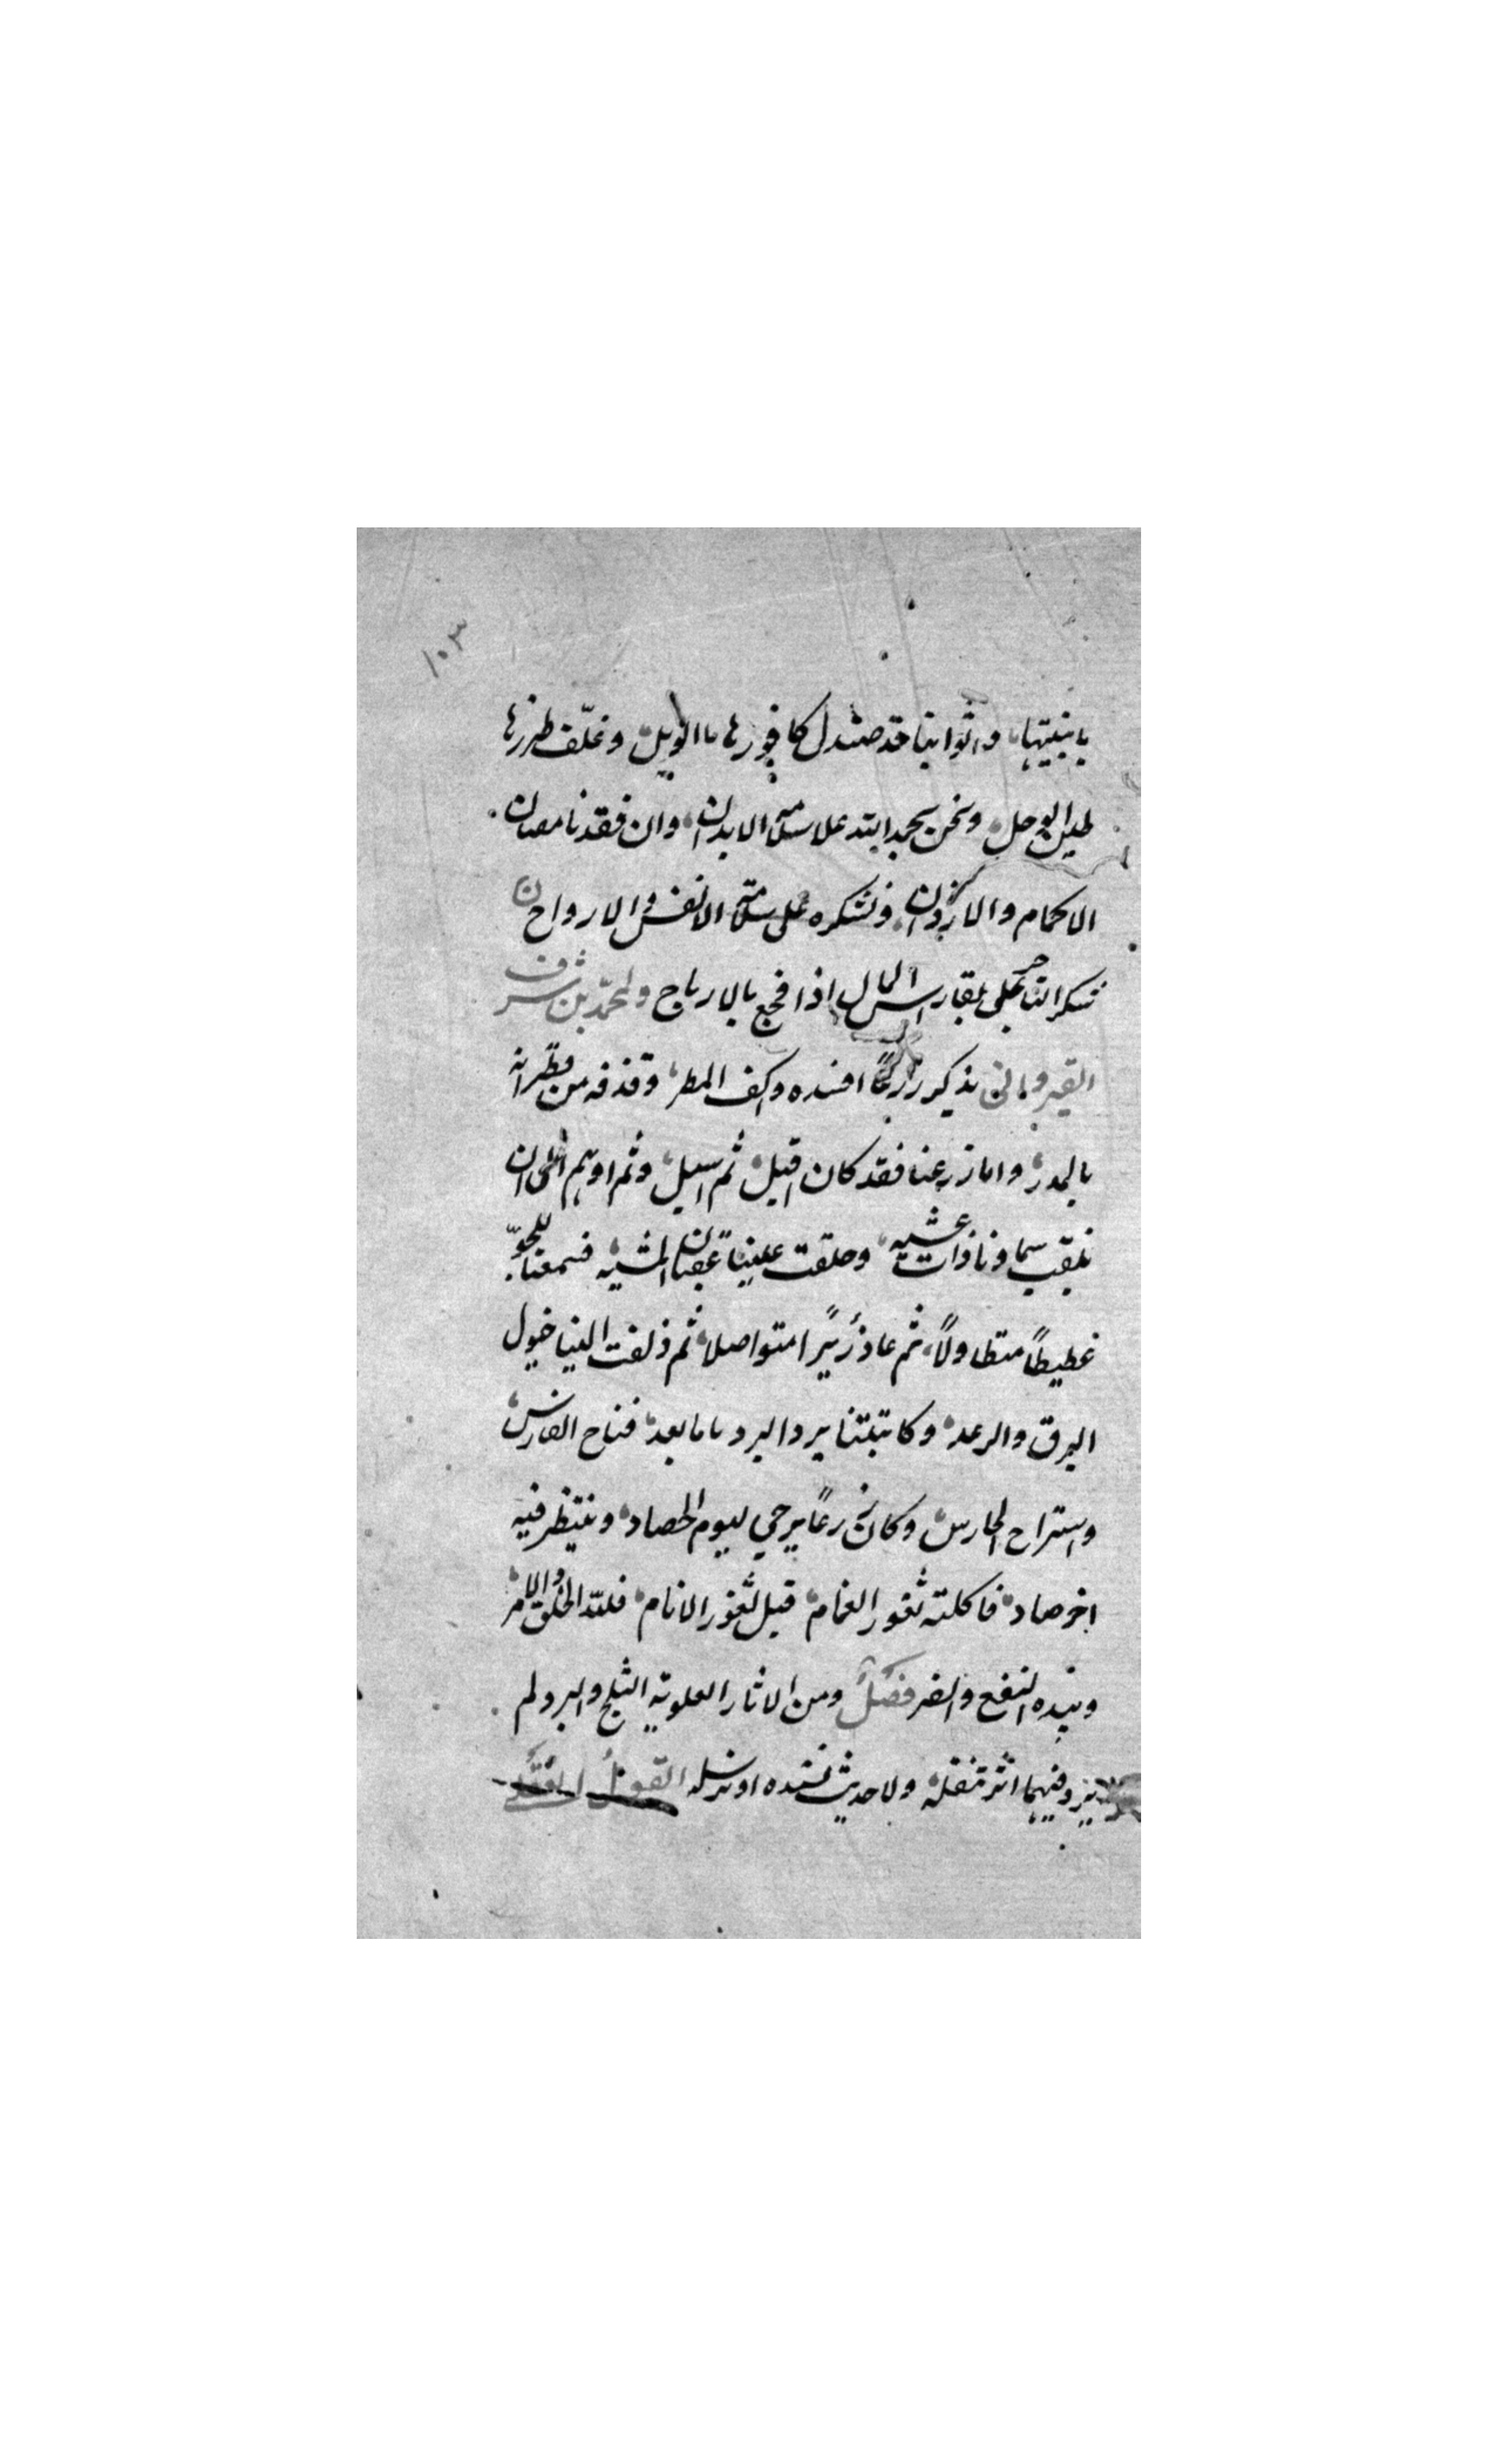 ١٠٣
بابنيتها، واثوابنا قد صندل كافورها ما الوبل، وغلّف طرزها
طين الوحل، ونحن نحمد الله على سلامة الابدان، وان فقدنا مصان
الاكمام والاردان، ونشكره على سلامة الانفس والارواح
شكر التاجر على بقا راس المال اذا فجع بالارباح ولمحمد بن شرف
القيروانى يذكر زرعًا افسده واكف المطر، وقذفه من قطرانه
بالمدر، واما زرعنا فقد كان اقبل، ثم اسبل، وثم اوهم الى ان
سما وناذات عشيه، وحلقت علينا عقبان المشيه، فسمعنا للجوّ
غطيطًا متطاولًا، ثم عاد زئيرًا متواصلا، ثم زلفت الينا خيول
البرق والرعد، وكاتبتنا يد البرد باما بعد، فناح الفارس،
واستراح الحارس، وكان زرعًا يرجي ليوم الحصاد، وينتظر فيه
اخر صاد، فاكلته ثغور الغمام، قبل ثغور الانام، فلله الخلق والامر،
وبيده النفع والضر فصل ومن الاثار العلوية الثلج والبرد ولم
يرد فيهما اثر ننقله، ولا حديث نسنده او نرسله القول